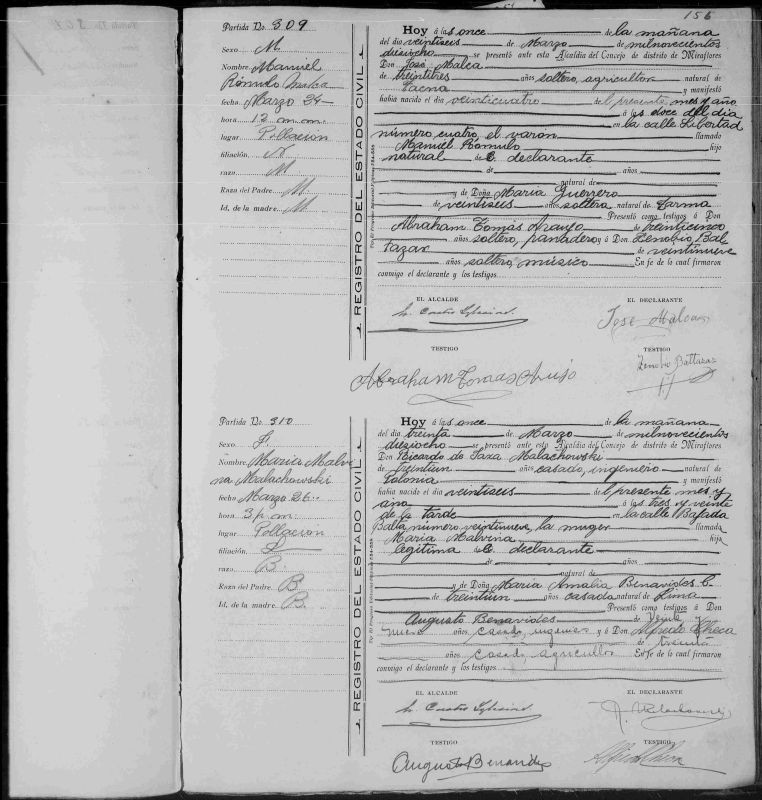 156
Partida No. 309
Sexo M
Nombre Manuel
Rómulo Malca
fecha Marzo 24
hora 12 m
lugar Pollación
filiación N
raza M
Raza del Padre M.
Id. de la madre M
REGISTRO DEL ESTADO CIVIL
Hoy á las once de la mañana
del dia veintiseis de Marzo de milnovecientos
dieziocho se presentó ante esta Alcaldia del Concejo de distrito de Miraflores
Don José Malca
de treintitres años soltero, agricultor natural de
Tacna y manifestó
habia nacido el veinticuatro del presente mes y año
á las doce del dia
en la calle Libertad
número cuatro, el varon llamado
Manuel Rómulo hijo
natural del declarante
de años
natural de
y de Doña Maria Guerrero
de veintiseis años soltera natural de Tarma
Presentó como testigos á Don
Abraham Tomás Araujo de treinticinco
años soltero, panadero y á Don Zenobio Bal
tazar de veintinueve
años soltero, músico En fe de lo cual firmaron
conmigo el declarante y los testigos
EL ALCALDE
EL DECLARANTE
José Malca
TESTIGO
TESTIGO
Zenobio Baltazar
Abraham Tomas Araujo
Partida No. 310
Sexo F.
Nombre Maria Malvi
na Malachowski
fecha Marzo 26
hora 3 p m
lugar Pollación
filiación L
raza B.
Raza del Padre B
Id. de la madre B.
REGISTRO DEL ESTADO CIVIL
Hoy á las once de la mañana
del dia treinta de Marzo de milnovecientos
dieziocho se presentó ante esta Alcaldia del Concejo de distrito de Miraflores
Don Ricardo de Jaxa Malachowski
de treintiun años casado, ingeniero natural de
Polonia y manifestó
habia nacido el veintiseis del presente mes y
año á las tres y veinte
de la tarde en la calle Bajada
Balta número veintinueve, la muger llamada
Maria Malvina hija
legitima del declarante
de años
natural de
y de Doña Maria Amalia Benavides C.
de treintiun años casada natural de Lima
Presentó como testigos á Don
Augusto Benavides de Veinte y
nueve años casado, ingeniero y á Don Alfredo Checa
de treinta
años casado, agricultor En fe de lo cual firmaron
conmigo el declarante y los testigos
EL ALCALDE
EL DECLARANTE
R. Malachowski
TESTIGO
TESTIGO
Augusto Benavides
Alfredo Checa